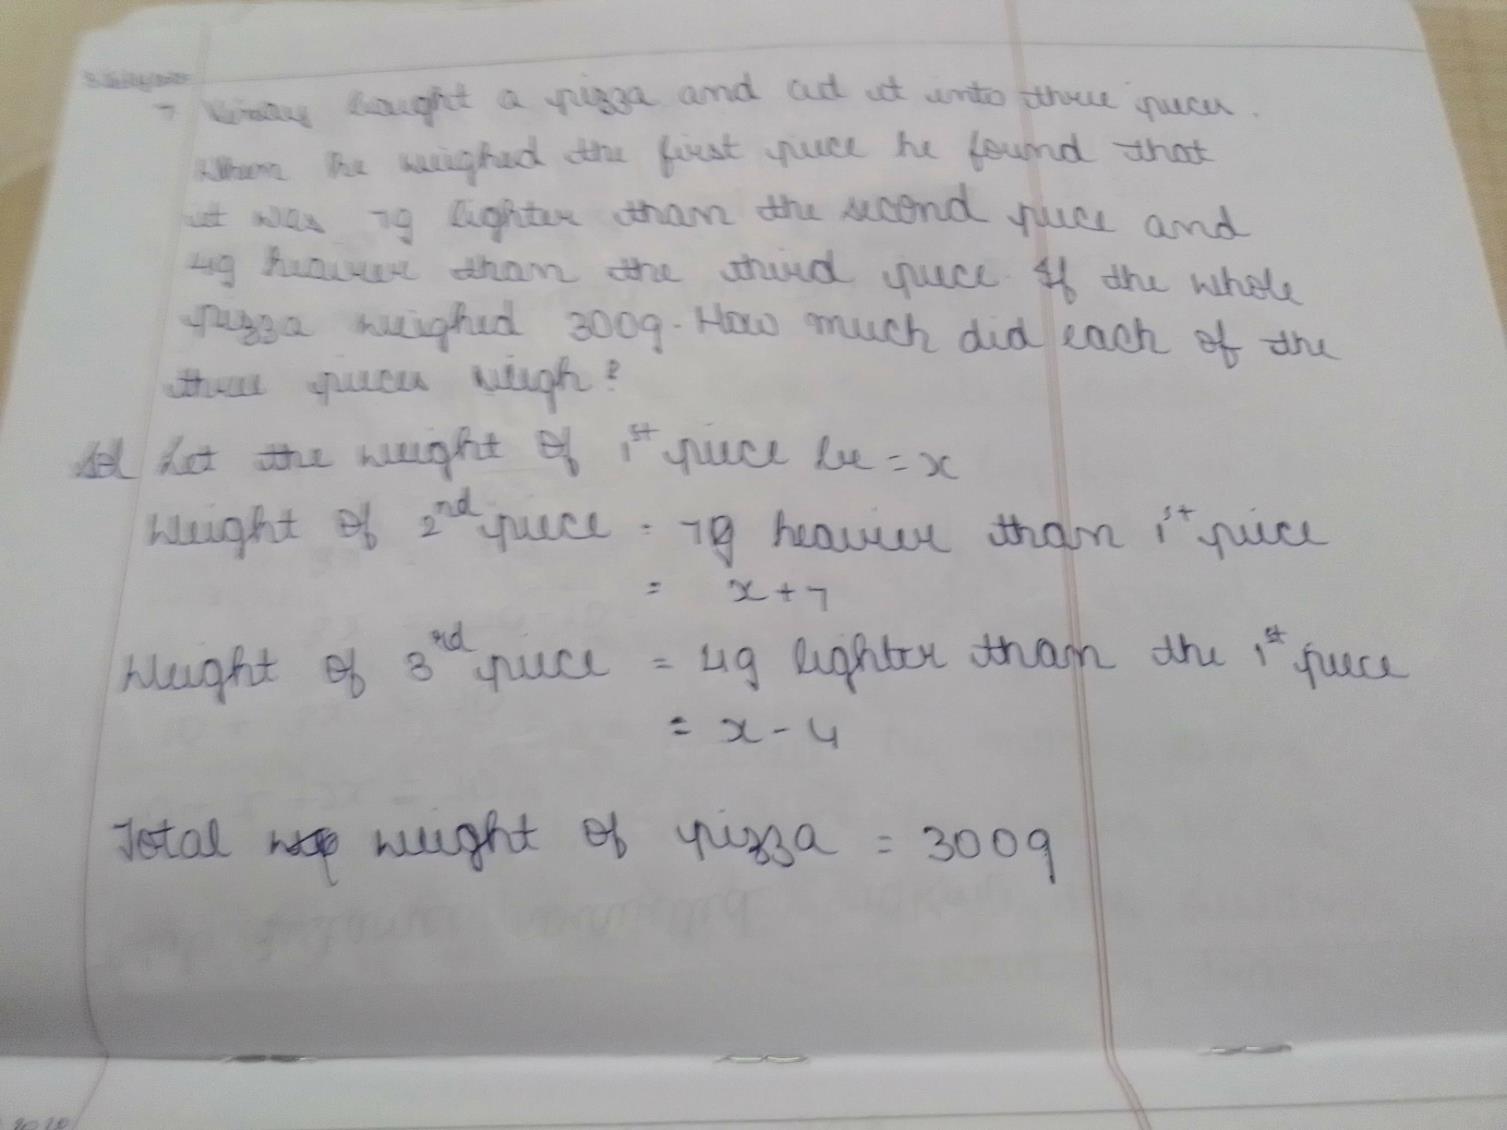 7 Vinay bought a pizza and cut it into three pieces.
When he weighed the first piece he found that
it was 7g lighter than the second piece and
4g heavier than the third piece. If the whole
pizza weighed 300g. How much did each of the
three pieces weigh?
Sol Let the weight of 1st piece be = x
Weight of 2nd piece = 7g heavier than 1st piece
= x + 7
Weight of 3rd piece = 4g lighter than the 1st piece
= x - 4
Total weight of pizza = 300g